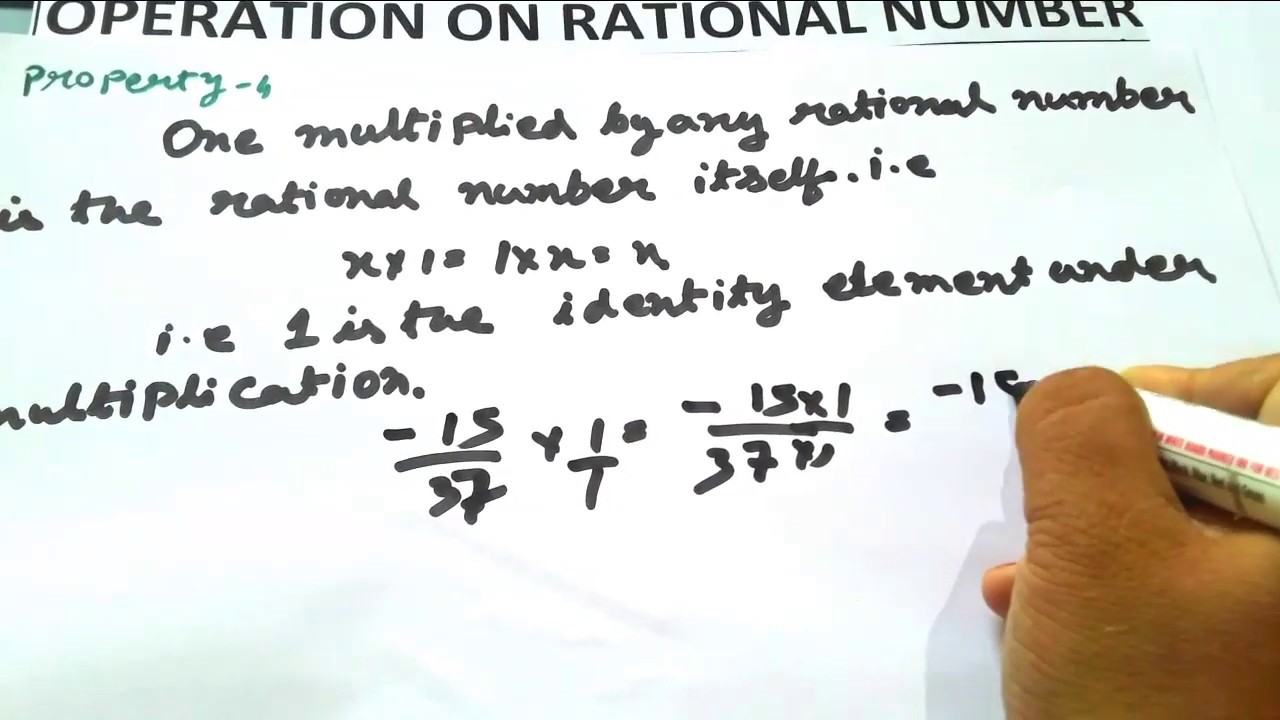 OPERATION ON RATIONAL NUMBER
Property-4
One multiplied by any rational number
is the rational number itself. i.e
x×1= 1×x= x
i.e 1 is the identity element under
multiplication.
-15/37 × 1/1 = -15×1/37×1 = -15